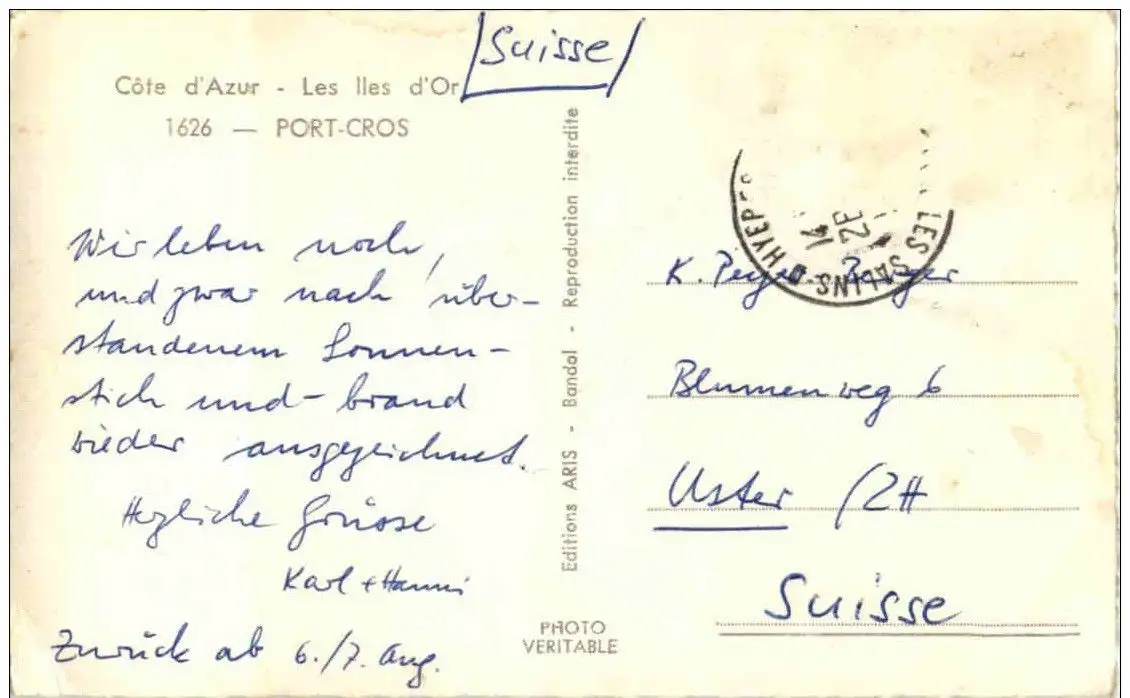 Suisse
Côte d'Azur - Les Iles d'Or
1626 — PORT-CROS
Wir leben noch,
und zwar nach über-
standenem Sonnen-
stich und -brand
wieder ausgezeichnet.
Herzliche Grüsse
Karl + Hanni
Zurück ab 6./7. Aug.
Editions ARIS - Bandol - Reproduction interdite
PHOTO
VERITABLE
LES SALINS D'HYER
14
22
K.
Blumenweg 6
Uster / ZH
Suisse